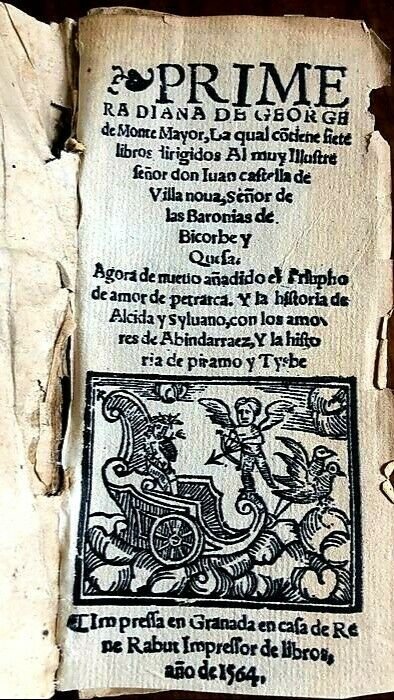 PRIME
RA DIANA DE GEORGE
de Monte Mayor, La qual cõtiene siete
libros dirigidos Al muy Illustre
señor don Iuan castella de
Villa noua, señor de
las Baronias de.
Bicorbe y
Quesa.
Agora de nueuo añadido el Triũpho
de amor de petrarca. Y la historia de
Alcida y Syluano, con los amo
res de Abindarraez, Y la histo
ria de piramo y Tysbe
Im pressa en Granada en casa de Re
ne Rabut Impressor de libros,
año de 1564.